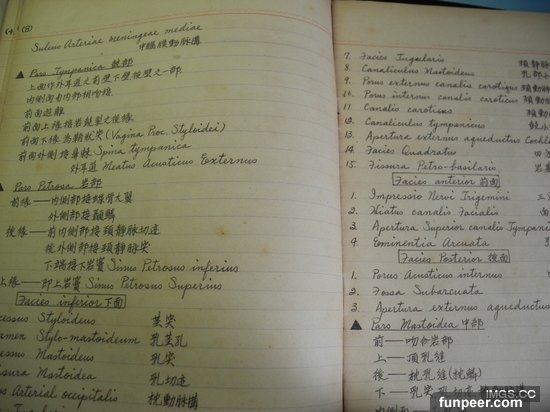 (4) (B)
Sulcus Arteriae meningeae mediae
中腦膜動脈溝
▲ Pars Tympanica 鼓部
上面作外耳道之前壁下壁後壁之一部.
內側面向內部相吻接.
前面游離
前面上緣接岩鼓裂之後緣.
前面下緣為鞘狀突 (Vagina Proc. Styloidei)
前面外側接 Spina tympanica
外耳道 Meatus Acusticus Externus
▲ Pars Petrosa 岩部
前緣—內側部接蝶骨大翼
外側部接顳鱗
後緣—前內側部接頸靜脈切迹
後外側部接頸靜脈突
下端接下岩竇 Sinus Petrosus inferius
上緣—即上岩竇 Sinus Petrosus Superius
Facies inferior 下面
cessus Styloideus 莖突
amen Stylo-mastoideum 乳莖孔
essus Mastoideus 乳突
isura Mastoidea 乳切迹
us Arterial occipitalis 枕動脈溝
7. Facies Jugularis 頸靜脈
8. Canaliculus Mastoideus 乳部
9. Porus externus canalis carotigus 頸動
10. Porus internus canalis caroticus 頸動
11. Canalis caroticus 頸動
12. Canaliculus tympanicus 鼓小
13. Apertura externus aqueductus Cochl
14. Facies Quadratus
15. Fissura Petro-basilaris 岩
Facies anterior 前面
1. Impressio Nervi Trigemini 三
2. Hiatus canalis Facialis 面
3. Apertura Superior canalis Tympani
4. Eminentia Arcuata
Facies Posterior 後面
1. Porus Acusticus internus
2. Fossa Subarcuata
3. Apertura externus aqueductus
▲ Pars Mastoidea 中部
前—吻合岩部
上—頂乳縫
後—枕乳縫(枕鱗)
下—乳突 乳切迹
IMGS.CC
funpeer.com